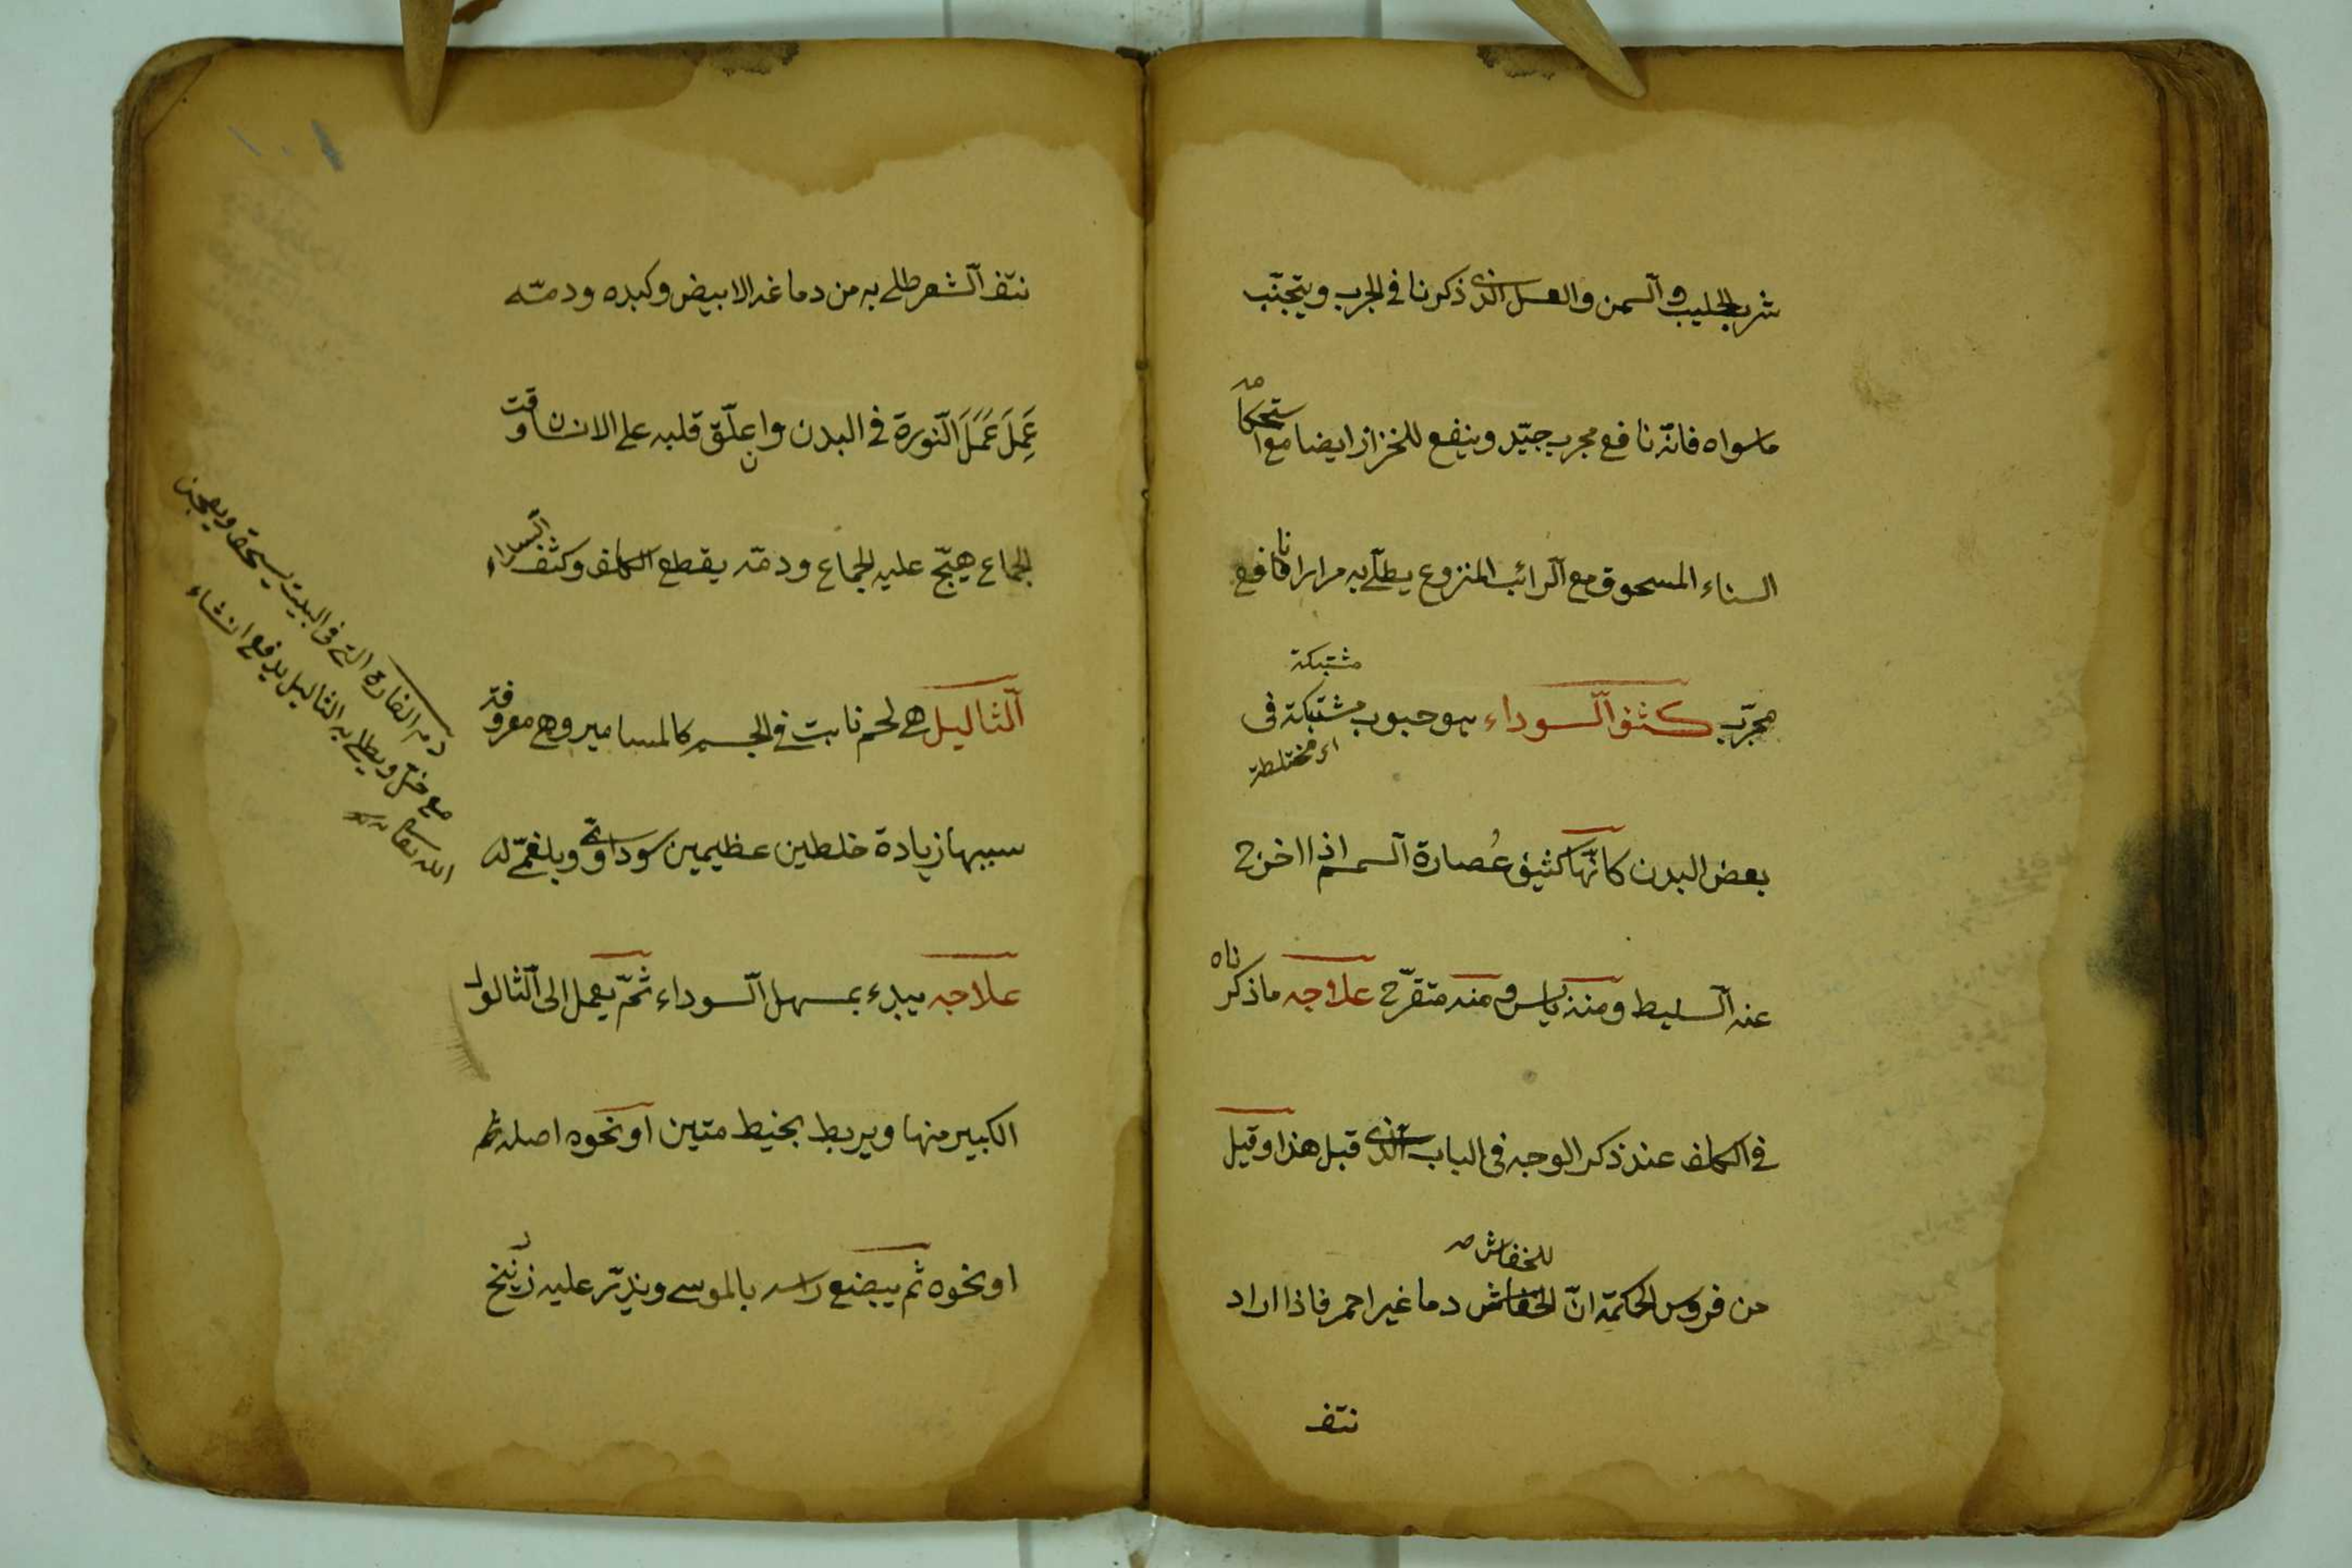 شرب الحليب والسمن والعسل الذى ذكرنا فى الجرب ويتجنّب
ما سواه فانّه نافع مجرب جيّد وينفع للخزاز ايضا مع استحكامه
السناء المسحوق مع الرائب المنزوع يطلّى به مرارا نافع
مشتبكة
مجرّب كثف السوداء هو حبوب مشتبكة فى
اى مختلطة
بعض البدن كانّها كثيف عُصارة السمسم اذا اخرج
عنه السليط ومنه يابس ومنه متقرّح علاجه ما ذكرناه
فى الكلف عند ذكر الوجه فى الباب الذى قبل هذا وقيل
للخفاش صح
من فردوس الحكمة انّ الخفاش دماغير احمر فاذا اراد
نتف
١٠١
نتف الشعر طلى به من دماغه الابيض وكبده ودمّه
عَمِلَ عَمَلَ النّورة فى البدن وان علّق قلبه على الانسان وقت
الجماع هيّج عليه الجماع ودمّه يقطع الكلف وكثف السوداء
الثاليل هى لحم نابت فى الجسم كالمسامير وهى معروفة
سببها زيادة خلطين عظيمين سوداوىّ وبلغمىّ له
علاجه يبدء بمسهل السوداء ثمّ يعمل الى الثالول
الكبير منها ويربط بخيط متين او نحوه اصله ثم
او نحوه ثم يبضع راسه بالموسى ويذرّ عليه زرنيخ
دم الفارة التى فى البيت يسحق ويعجن
مع خلّ ويطلى به الثاليل يدفع انشاء
الله تعالى